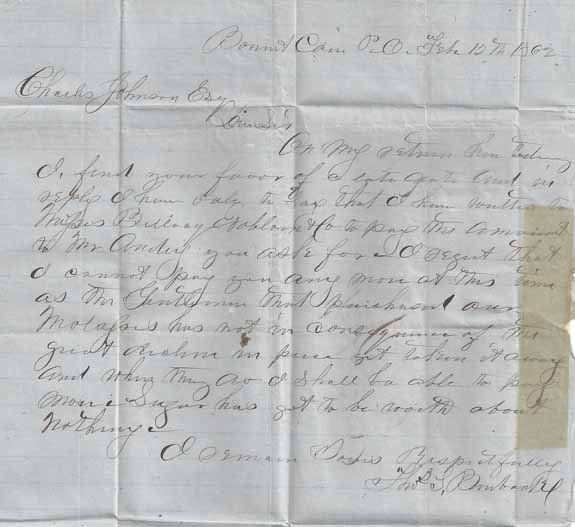 Bonnet Carre P.O. Feb 12th 1862
Charles Johnson Esq
Dear Sir
On my return here today
I find your favor of a late date and in
reply I have only to say that I have written to
Messrs & Co to pay the amount
to Mr you ask for I regret that
I cannot pay you any more at this time
as the Gentlemen that purchased our
Molasses has not in consequence of the
great decline in price yet taken it away
and when they do I shall be able to pay
more Sugar has got to be worth about
Nothing
I remain Yours Respectfully